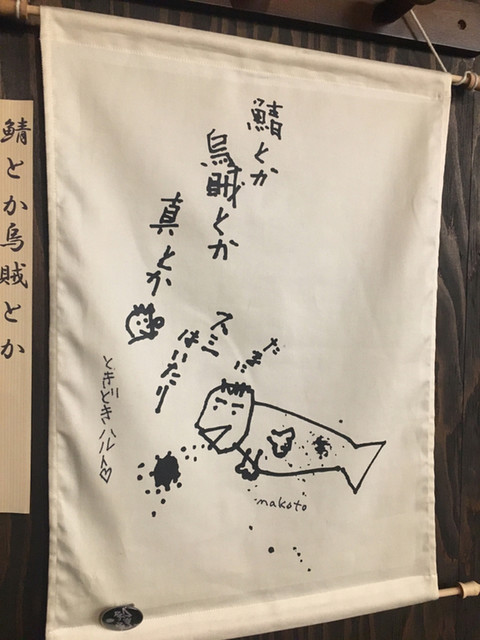 鯖とか
烏賊とか
真とか
たまに
スミ
はいたり
ときどきハルト♡
makoto
鯖とか烏賊とか